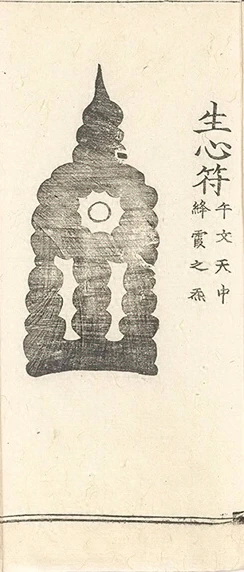 生心符
午文天中
絳霞之炁